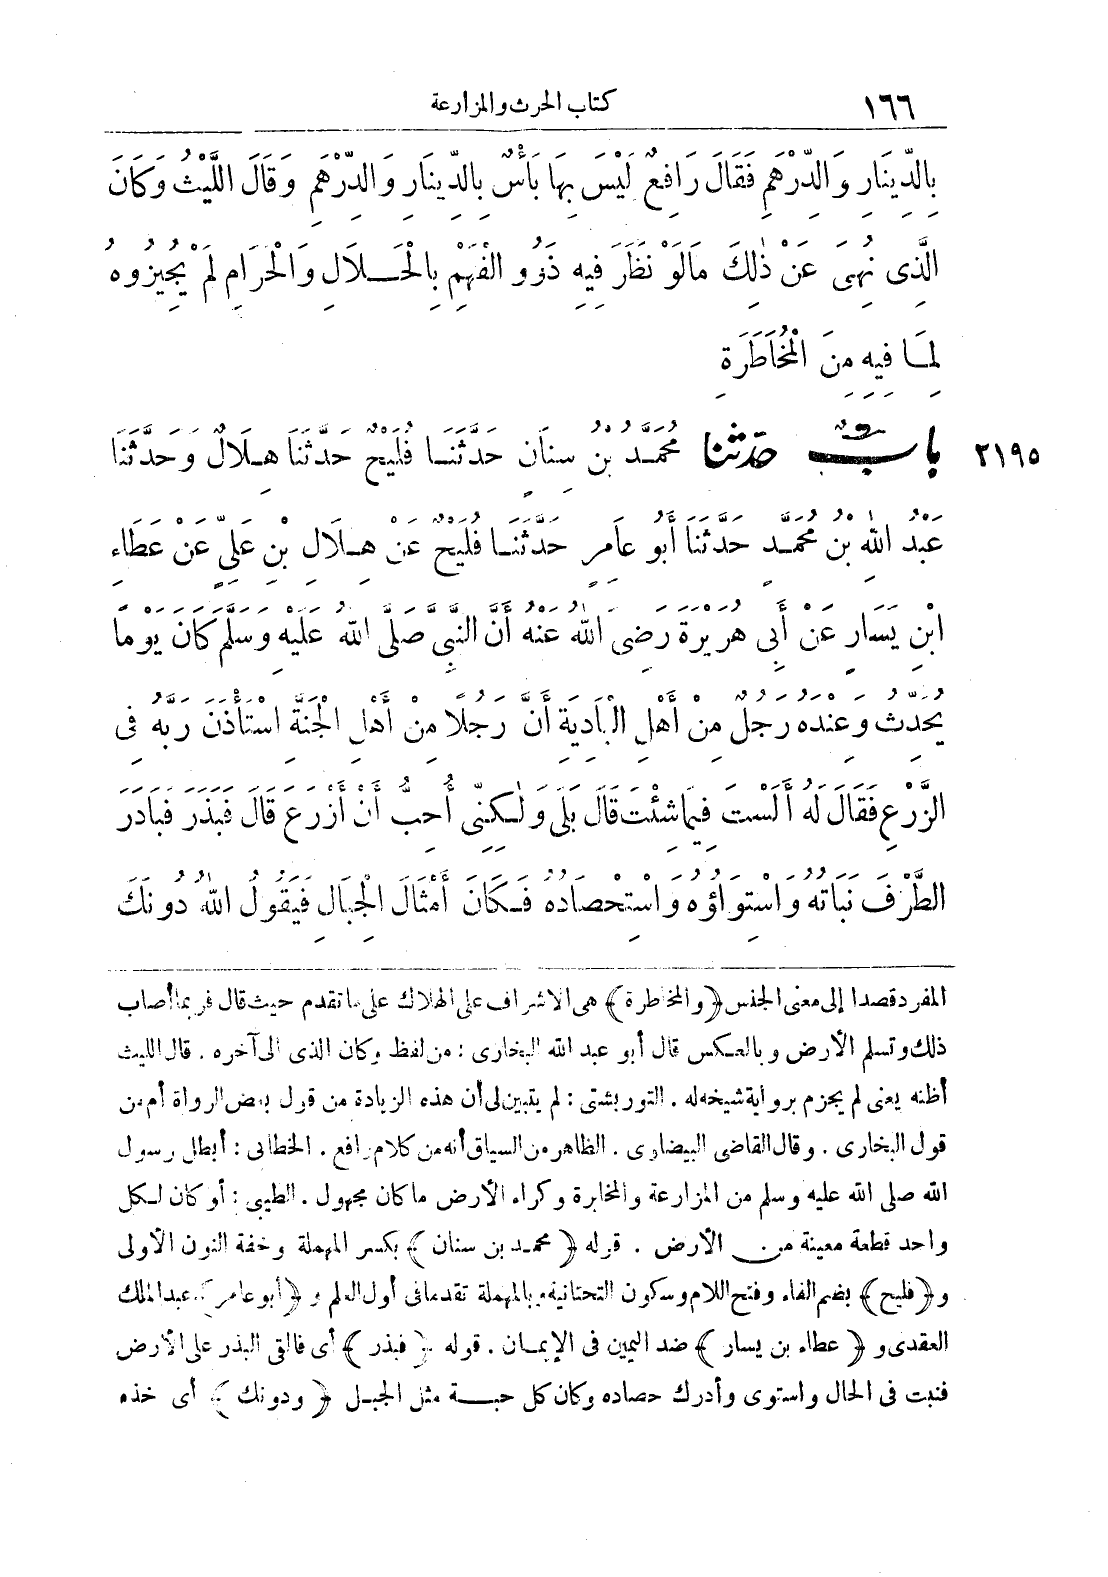 ١٦٦
كتاب الحرث والمزارعة
بِالدِّينَارِ وَالدِّرْهَمِ فَقَالَ رَافِعٌ لَيْسَ بِهَا بَأْسٌ بِالدِّينَارِ وَالدِّرْهَمِ وَقَالَ اللَّيْثُ وَكَانَ
الَّذِى نُهِىَ عَنْ ذٰلِكَ مَالَوْ نَظَرَ فِيهِ ذَوُو الْفَهْمِ بِالْحَلَالِ وَالْحَرَامِ لَمْ يُجِيزُوهُ
لِمَا فِيهِ مِنَ الْمُخَاطَرَةِ
٢١٩٥
بَابٌ حَدَّثَنَا مُحَمَّدُ بْنُ سِنَانٍ حَدَّثَنَا فُلَيْحٌ حَدَّثَنَا هِلَالٌ وَحَدَّثَنَا
عَبْدُ اللّٰهِ بْنُ مُحَمَّدٍ حَدَّثَنَا أَبُو عَامِرٍ حَدَّثَنَا فُلَيْحٌ عَنْ هِلَالِ بْنِ عَلِيٍّ عَنْ عَطَاءِ
ابْنِ يَسَارٍ عَنْ أَبِى هُرَيْرَةَ رَضِىَ اللّٰهُ عَنْهُ أَنَّ النَّبِىَّ صَلَّى اللّٰهُ عَلَيْهِ وَسَلَّمَ كَانَ يَوْمًا
يُحَدِّثُ وَعِنْدَهُ رَجُلٌ مِنْ أَهْلِ الْبَادِيَةِ أَنَّ رَجُلًا مِنْ أَهْلِ الْجَنَّةِ اسْتَأْذَنَ رَبَّهُ فِى
الزَّرْعِ فَقَالَ لَهُ أَلَسْتَ فِيمَا شِئْتَ قَالَ بَلَى وَلٰكِنِّى أُحِبُّ أَنْ أَزْرَعَ قَالَ فَبَذَرَ فَبَادَرَ
الطَّرْفَ نَبَاتُهُ وَاسْتِوَاؤُهُ وَاسْتِحْصَادُهُ فَكَانَ أَمْثَالَ الْجِبَالِ فَيَقُولُ اللّٰهُ دُونَكَ
المفرد قصدا إلى معنى الجنس ﴿والمخاطرة﴾ هى الاشراف على الهلاك على ما تقدم حيث قال فربما أصاب
ذلك وتسلم الأرض وبالعكس قال أبو عبد الله البخارى : من لفظ وكان الذى الى آخره . قال الليث
أظنه يعنى لم يجزم برواية شيخه له . التوربشتى : لم يتبين لى أن هذه الزيادة من قول بعض الرواة أم من
قول البخارى . وقال القاضى البيضاوى . الظاهر من السياق أنه من كلام رافع . الخطابى : أبطل رسول
الله صلى الله عليه وسلم من المزارعة والمخابرة وكراء الأرض ما كان مجهول . الطيبى : أو كان لكل
واحد قطعة معينة من الأرض . قوله ﴿محمد بن سنان﴾ بكسر المهملة وخفة النون الأولى
و﴿فليح﴾ بضم الفاء وفتح اللام وسكون التحتانية وبالمهملة تقدما فى أول العلم و﴿أبو عامر﴾ عبد الملك
العقدى و﴿عطاء بن يسار﴾ ضد اليمين فى الإيمان . قوله ﴿فبذر﴾ أى فالقى البذر على الأرض
فنبت فى الحال واستوى وأدرك حصاده وكان كل حبة مثل الجبل ﴿ودونك﴾ أى خذه